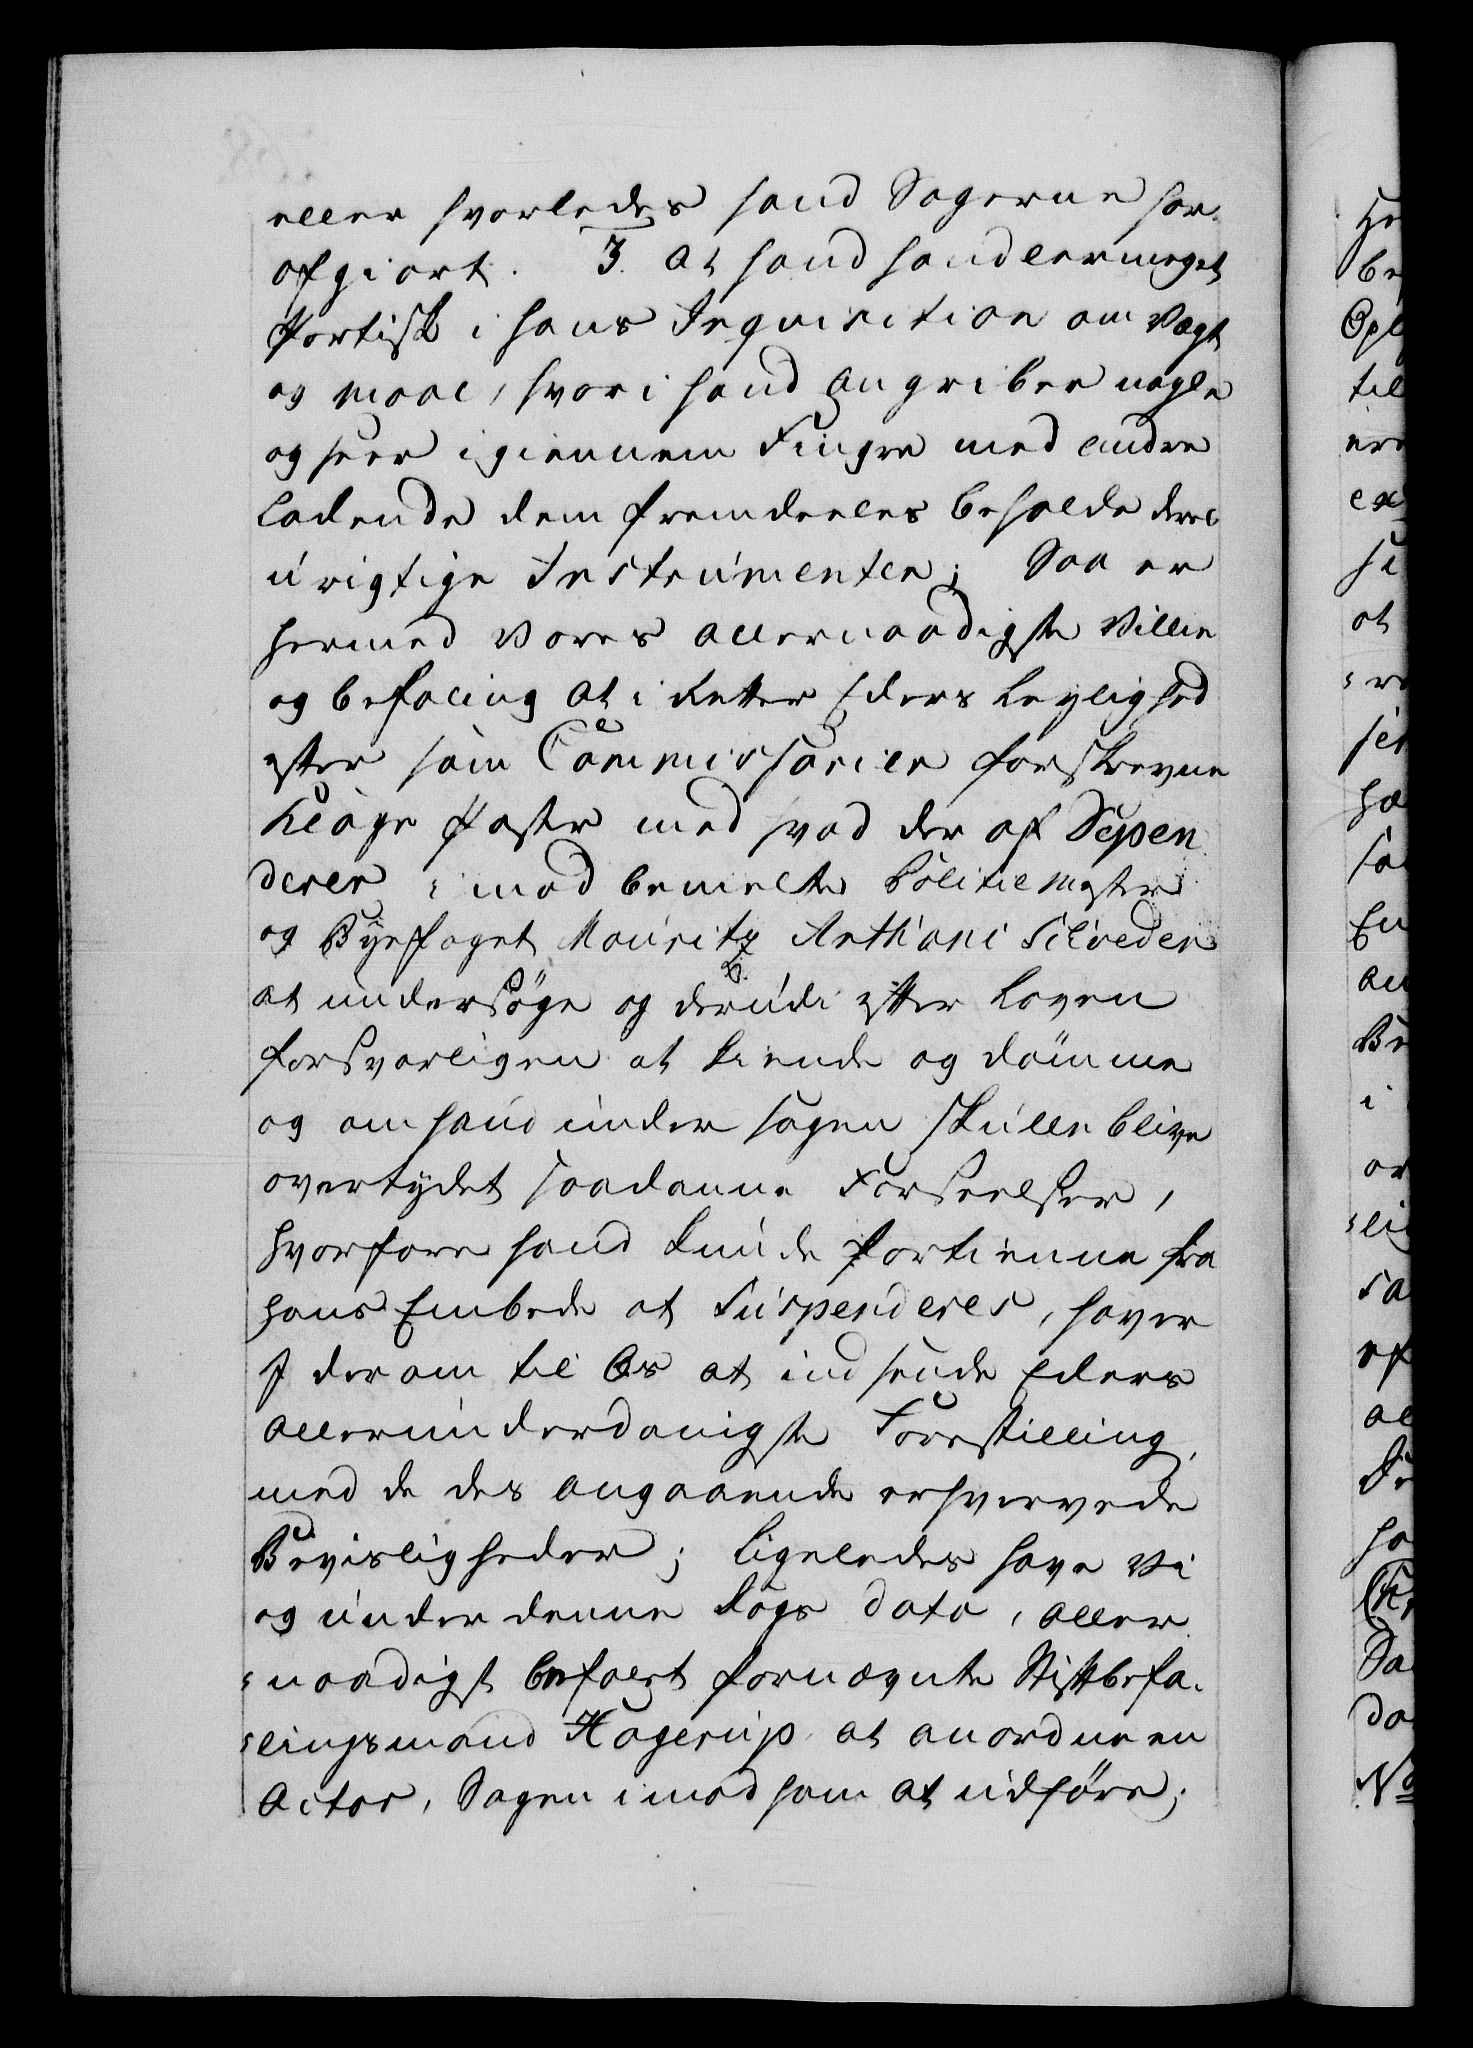 eller hvorledes hand Sagerne har
afgiort. 3. At hand handler meget
Partisk i hans Inquisition om Vægt
og Maal, hvori hand angriber nogle
og seer igiennem Fingre med andre
ladende dem fremdeeles beholde deres
urigtige Instrumenter; Saa er
hermed Vores allernaadigste Villie
og befaling at i retter Eders leylighed
efter som Commissarier forskrevne
Klage Poster med hvad der af Depen
derer imod bemelte Politiemester
og Byefoget Mouritz Anthoni Silveder
at undersöge og derudi efter Loven
forsvarligen at kiende og dömme
og om hand under sagen skulle blive
overtydet saadanne Forseelser,
hvorfore hand kunde fortienne fra
hans Embede at suspenderes, haver
I derom til Os at indsende Eders
allerunderdanigste Forestilling,
med de des angaaende erhvervede
Bevisligheder; ligeledes have Vi
og under denne Dags dato, aller
naadigst befalet fornævnte Stiftbefa-
lingsmand Hagerup at anordne en
Actor, Sagen imod ham at udføre;